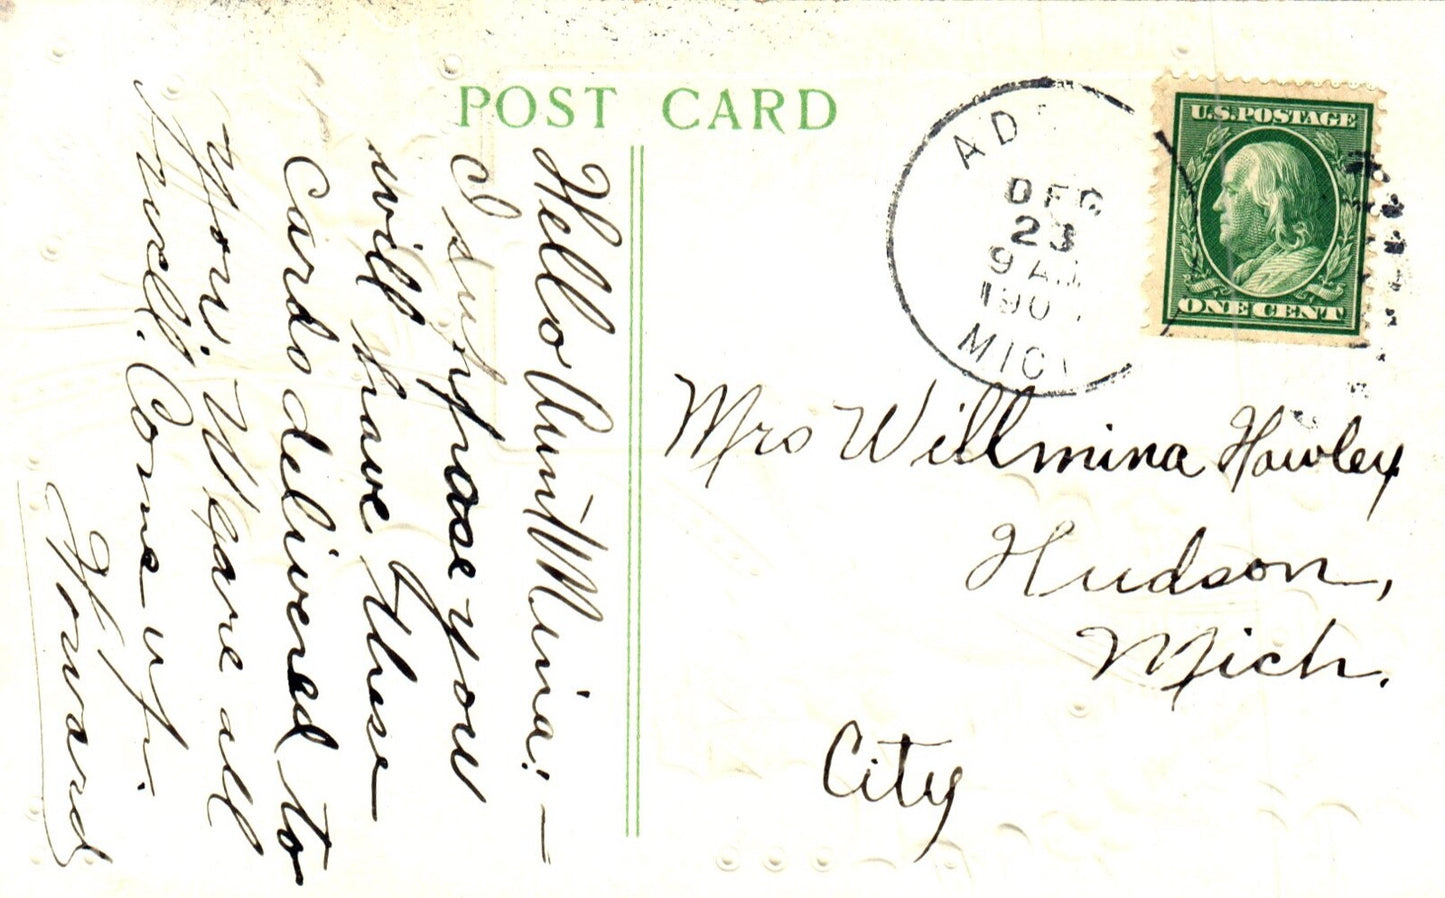 POST CARD
AD
DEC
23
9 AM
190
MICH
U.S. POSTAGE
ONE CENT
Hello Aunt Minia: —
I suppose you
will have these
Cards delivered to
You. We are all
well. Come up.
Howard
Mrs Willmina Howley
Hudson,
Mich.
City